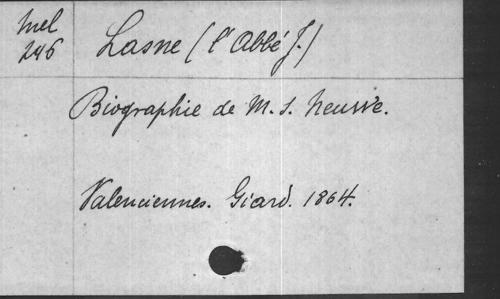 Mel
246
Lasne (l'Abbé J.)
Biographie de M. S. Neusve.
Valenciennes. Giard. 1864.